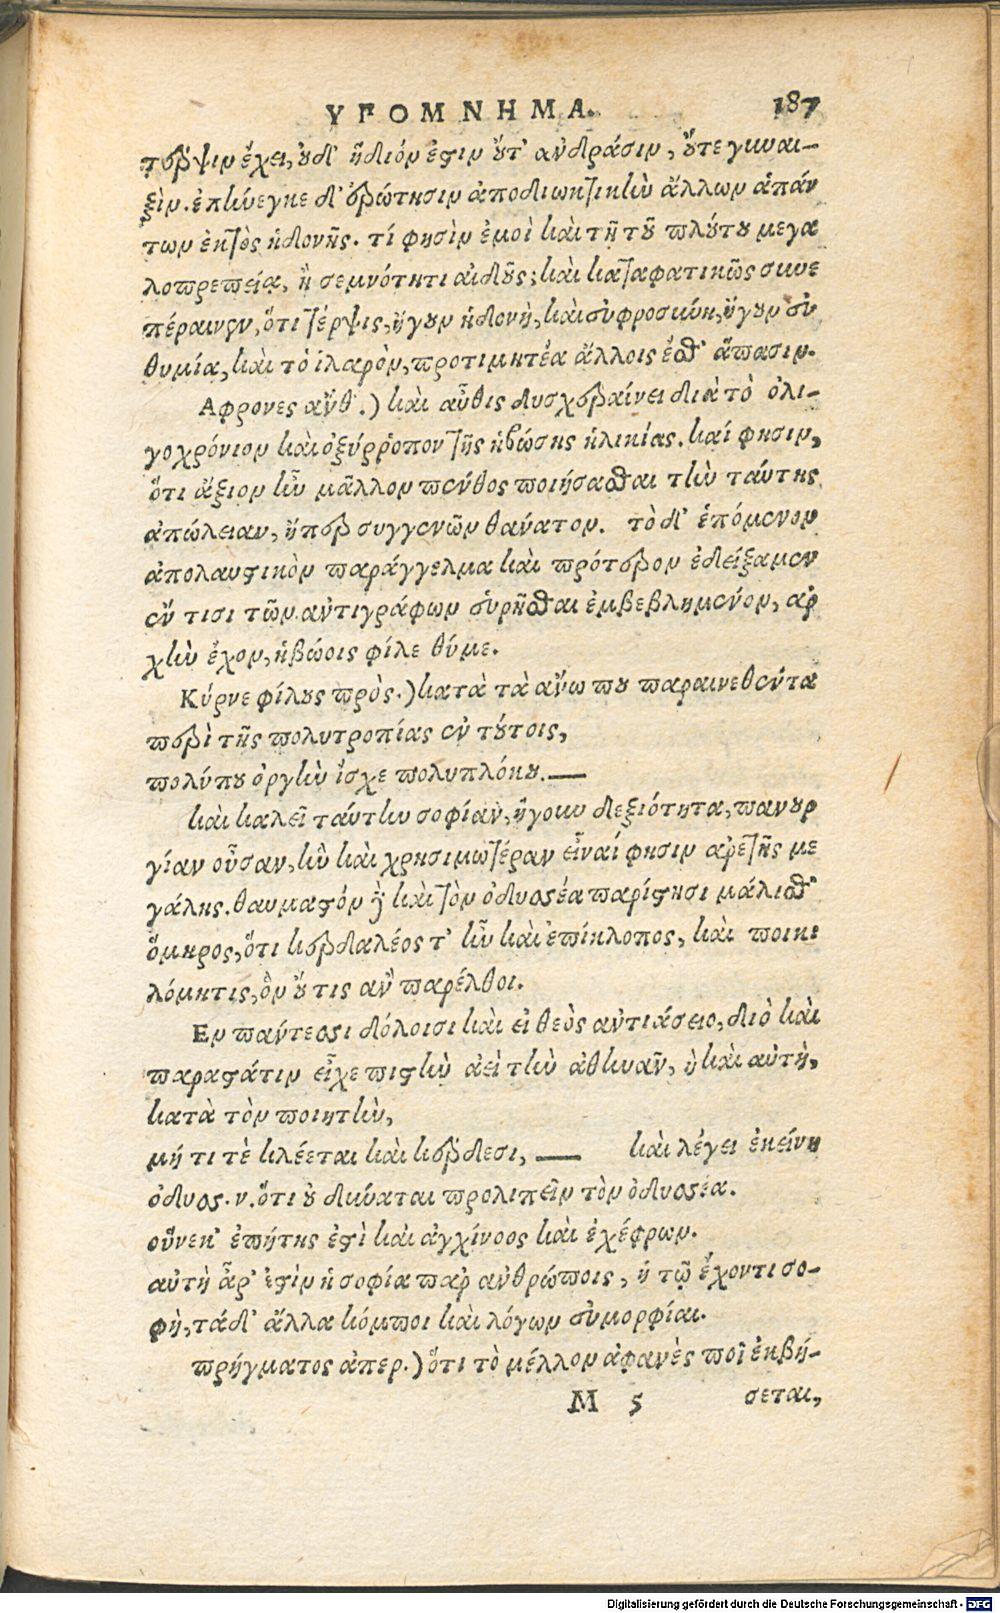 ΥΠΟΜΝΗΜΑ. 187
τέρψιν ἔχει, οὐδ' ἥδιόν ἐστιν οὔτ' ἀνδράσιν, οὔτε γυναι-
ξὶν. ἐπήνεγκε δ' ἐρώτησιν ἀποδιωκτικὴν ἄλλων ἁπάν
των ἐκτὸς ἡδονῆς. τί φησὶν ἐμοὶ καὶ τῇ τοῦ πλούτου μεγα
λοπρεπείᾳ, ἢ σεμνότητι αἰδοῦς; καὶ καταφατικῶς συνε
πέραινεν, ὅτι τέρψις, ἤγουν ἡδονὴ, καὶ εὐφροσύνη, ἤγουν εὐ
θυμία, καὶ τὸ ἱλαρὸν, προτιμητέα ἄλλοις ἐσθ' ἅπασιν.
Αφρονες ἄνθ.) καὶ αὖθις δυσχεραίνει διὰ τὸ ὀλι-
γοχρόνιον καὶ ὀξύρροπον τῆς ἡβώσης ἡλικίας. καί φησιν,
ὅτι ἄξιον ἦν μᾶλλον πένθος ποιήσασθαι τὴν ταύτης
ἀπώλειαν, ἤπερ συγγενῶν θάνατον. τὸ δ' ἑπόμενον
ἀπολαυστικὸν παράγγελμα καὶ πρότερον ἐδείξαμεν
ἔν τισι τῶν ἀντιγράφων εὑρῆσθαι ἐμβεβλημένον, ἀρ
χὴν ἔχον, ἡβώοις φίλε θύμε.
Κύρνε φίλους πρὸς.) κατὰ τὰ ἄνω που παραινεθέντα
περὶ τῆς πολυτροπίας ἐν τούτοις,
πολύπου ὀργὴν ἴσχε πολυπλόκου. —
καὶ καλεῖ ταύτην σοφίαν, ἤγουν δεξιότητα, πανουρ
γίαν οὖσαν, ἣν καὶ χρησιμωτέραν εἶναί φησιν ἀρετῆς με
γάλης. θαυμαστόν γὰρ καὶ τὸν ὀδυσσέα παρίστησι μάλισθ'
ὅμηρος, ὅτι κερδαλέος τ' ἦν καὶ ἐπίκλοπος, καὶ ποικι
λόμητις, ὃν οὔ τις ἂν παρέλθοι.
Εν πάντεσσι δόλοισι καὶ εἰ θεὸς ἀντιάσειο, διὸ καὶ
παραστάτιν εἶχε πιστὴν ἀεὶ τὴν ἀθηνᾶν, ἣ καὶ αὐτὴ,
κατὰ τὸν ποιητὴν,
μή τι τὲ κλέεται καὶ κέρδεσι, — καὶ λέγει ἐκείνη
ὀδυσ. ν. ὅτι οὐ δύναται προλιπεῖν τὸν ὀδυσσέα.
οὕνεκ' ἐπήτης ἐστὶ καὶ ἀγχίνοος καὶ ἐχέφρων.
αὐτὴ ἄρ' ἐστὶν ἡ σοφία παρ ἀνθρώποις, ἡ τῷ ἔχοντι σο-
φὴ, τάδ' ἄλλα κόμποι καὶ λόγων εὐμορφίαι.
πρήγματος ἀπερ.) ὅτι τὸ μέλλον ἀφανὲς ποῖ ἐκβή-
M 5 σεται,
Digitalisierung gefördert durch die Deutsche Forschungsgemeinschaft - DFG